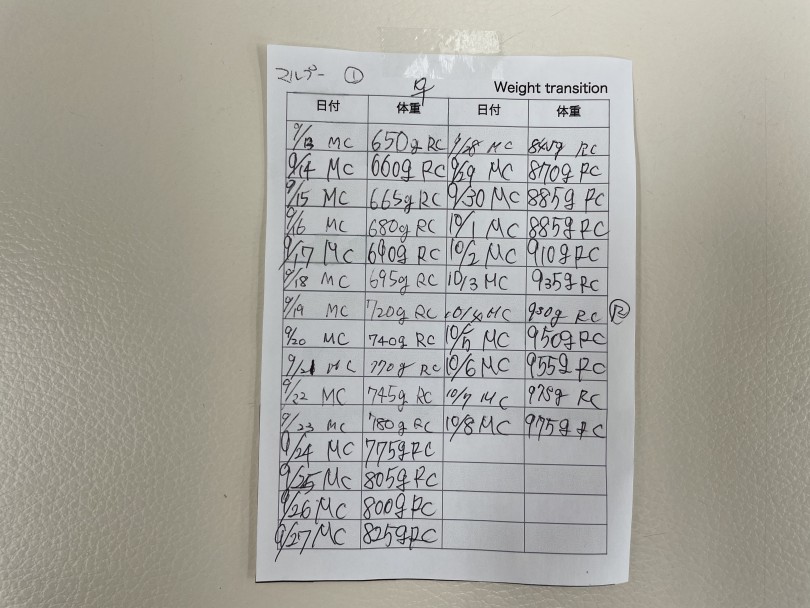 マルプー ①
♀
Weight transition
日付 体重 日付 体重
9/13 MC 650g RC 9/28 MC 840g RC
9/14 MC 660g RC 9/29 MC 870g RC
9/15 MC 665g RC 9/30 MC 885g RC
9/16 MC 680g RC 10/1 MC 885g RC
9/17 MC 690g RC 10/2 MC 910g RC
9/18 MC 695g RC 10/3 MC 935g RC
9/19 MC 720g RC 10/4 MC 930g RC Ⓡ
9/20 MC 740g RC 10/5 MC 950g RC
9/21 MC 770g RC 10/6 MC 955g RC
9/22 MC 745g RC 10/7 MC 978g RC
9/23 MC 780g RC 10/8 MC 975g RC
9/24 MC 775g RC
9/25 MC 805g RC
9/26 MC 800g RC
9/27 MC 825g RC